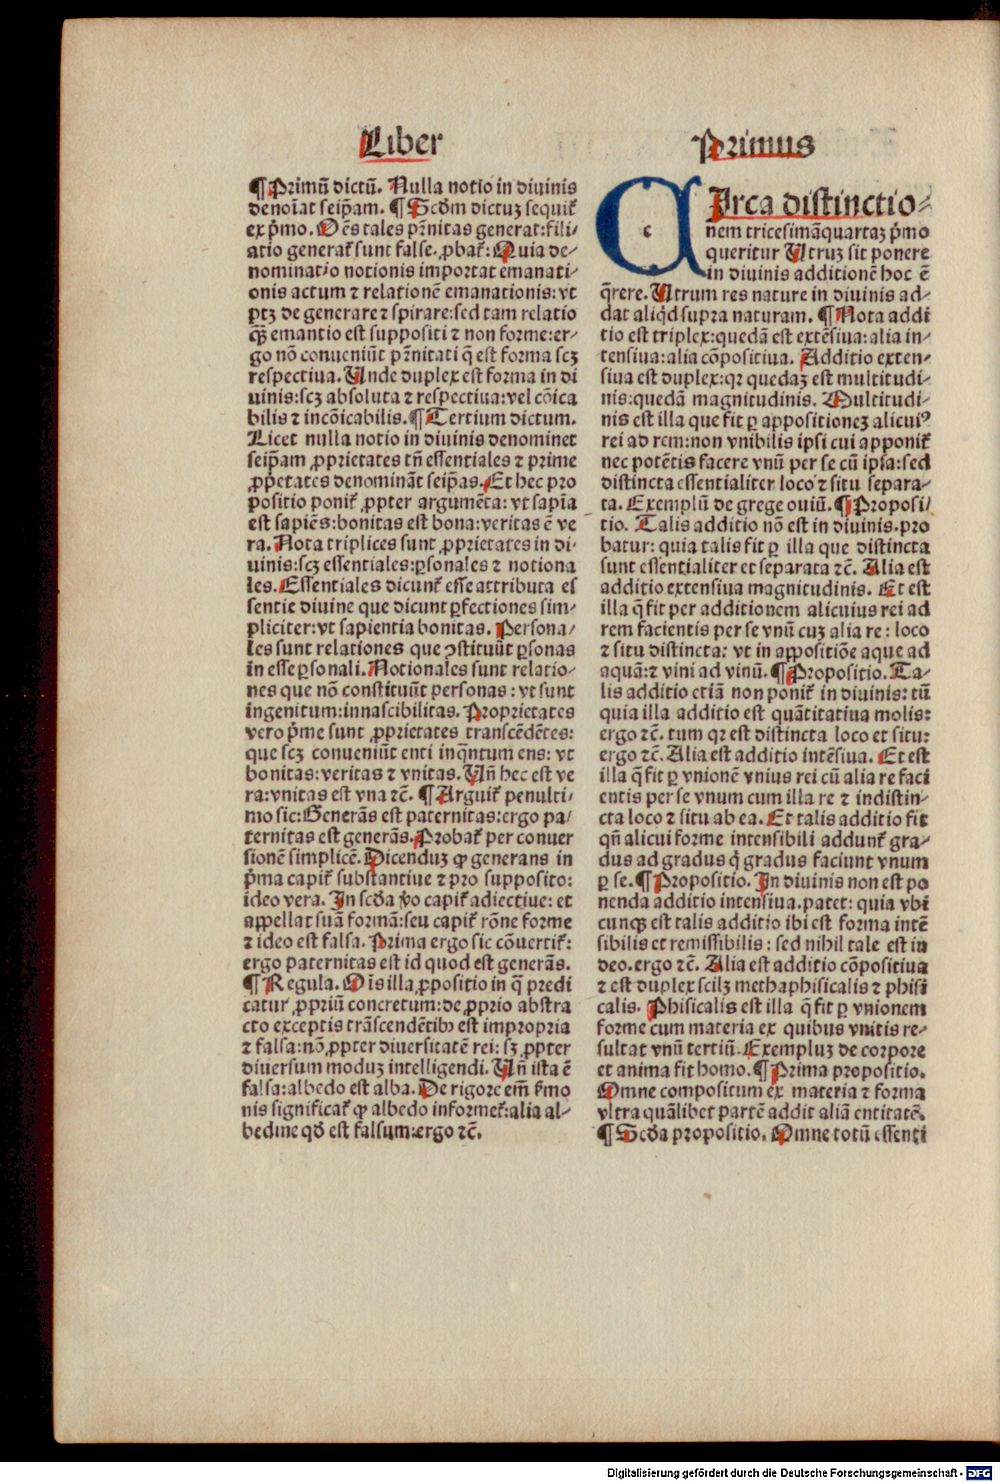 Liber
Primus
¶ Primū dictū. Nulla notio in diuinis
denoīat seip̄am. ¶ Scd̄m dictuꝫ sequiť
ex p̄mo. Oēs tales p̄nitas generat:fili⸗
atio generať sunt false. ꝓbať: Quia de⸗
nominatio notionis importat emanati⸗
onis actum ⁊ relationē emanationis: vt
ptꝫ de generare ⁊ spirare:sed tam relatio
qꝫ̄ emantio est suppositi ⁊ non forme:er⸗
go nō conueniūt p̄nitati q̄ est forma scꝫ
respectiua. Unde duplex est forma in di
uinis:scꝫ absoluta ⁊ respectiua:vel cōica
bilis ⁊ incōicabilis. ¶ Tertium dictum.
Licet nulla notio in diuinis denominet
seip̄am ꝓprietates tn̄ essentiales ⁊ prime
ꝓp̄etates denominãt seip̄as. Et hec pro
positio poniť ꝓpter argumēta: vt sapīa
est sapiēs:bonitas est bona:veritas ē ve
ra. Nota triplices sunt ꝓprietates in di⸗
uinis:scꝫ essentiales:ꝑsonales ⁊ notiona
les. Essentiales dicunť esse attributa es
sentie diuine que dicunt ꝑfectiones sim⸗
pliciter:vt sapientia bonitas. Persona⸗
les sunt relationes que ↄstituūt ꝑsonas
in esse ꝑsonali. Notionales sunt relatio⸗
nes que nō constituūt personas : vt sunt
ingenitum:innascibilitas. Proprietates
vero p̄me sunt ꝓprietates transcēdētes:
que scꝫ conueniūt enti inq̄ntum ens: vt
bonitas:veritas ⁊ vnitas. Un̄ hec est ve
ra:vnitas est vna ⁊c̄. ¶ Arguiť penulti⸗
mo sic:Generãs est paternitas:ergo pa⸗
ternitas est generãs. Probať per conuer
sionē simplicē. Dicenduꝫ ꝙ generans in
p̄ma capiť substantiue ⁊ pro supposito:
ideo vera. In scd̄a v̄o capiť adiectiue: et
appellat suã formã:seu capiť rōne forme
⁊ ideo est falsa. Prima ergo sic cōuertiť:
ergo paternitas est id quod est generãs.
¶ Regula. Oīs illa ꝓpositio in q̄ predi
catur ꝓpriū concretum:de ꝓprio abstra
cto exceptis trãscendētibꝫ est impropria
⁊ falsa:nō ꝓpter diuersitatē rei: sꝫ ꝓpter
diuersum moduꝫ intelligendi. Un̄ ista ē
falsa:albedo est alba. De rigore em̄ ſ̓mo
nis significať ꝙ albedo informeť:alia al⸗
bedine qd̄ est falsum:ergo ⁊c̄.
c
CIrca distinctio⸗
nem tricesimãquartaꝫ p̄mo
queritur Utruꝫ sit ponere
in diuinis additionē hoc ē
q̄rere. Utrum res nature in diuinis ad⸗
dat aliqd̓ supra naturam. ¶ Nota addi
tio est triplex:quedã est extēsiua:alia in⸗
tensiua:alia cōpositiua. Additio exten⸗
siua est duplex:qꝛ quedaꝫ est multitudi⸗
nis:quedã magnitudinis. Multitudi⸗
nis est illa que fit ꝑ appositioneꝫ alicuiꝰ
rei ad rem:non vnibilis ipsi cui apponiť
nec potētis facere vnū per se cū ipsa:sed
distincta essentialiter loco ⁊ situ separa⸗
ta. Exemplū de grege ouiū. ¶ Proposi⸗
tio. Talis additio nō est in diuinis.pro
batur: quia talis fit ꝑ illa que distincta
sunt essentialiter et separata ⁊c̄. Alia est
additio extensiua magnitudinis. Et est
illa q̄ fit per additionem alicuius rei ad
rem facientis per se vnū cuꝫ alia re : loco
⁊ situ distincta: vt in appositiōe aque ad
aquã:⁊ vini ad vinū. ¶ Propositio. Ta⸗
lis additio etiã non poniť in diuinis: tū
quia illa additio est quãtitatiua molis:
ergo ⁊c̄. tum qꝛ est distincta loco et situ:
ergo ⁊c̄. Alia est additio intēsiua. Et est
illa q̄ fit ꝑ vnionē vnius rei cū alia re faci
entis per se vnum cum illa re ⁊ indistin⸗
cta loco ⁊ situ ab ea. Et talis additio fit
qn̄ alicui forme intensibili addunť gra⸗
dus ad gradus q̄ gradus faciunt vnum
ꝑ se. ¶ Propositio. In diuinis non est po
nenda additio intensiua.patet: quia vbi
cunqꝫ est talis additio ibi est forma intē
sibilis et remissibilis : sed nihil tale est in
deo.ergo ⁊c̄. Alia est additio cōpositiua
⁊ est duplex scilꝫ methaphisicalis ⁊ phisi
calis. Phisicalis est illa q̄ fit ꝑ vnionem
forme cum materia ex quibus vnitis re⸗
sultat vnū tertiū. Exempluꝫ de corpore
et anima fit homo. ¶ Prima propositio.
Omne compositum ex materia ⁊ forma
vltra quãlibet partē addit aliã entitatē.
¶ Scd̄a propositio. Omne totū essenti
Digitalisierung gefördert durch die Deutsche Forschungsgemeinschaft - DFG